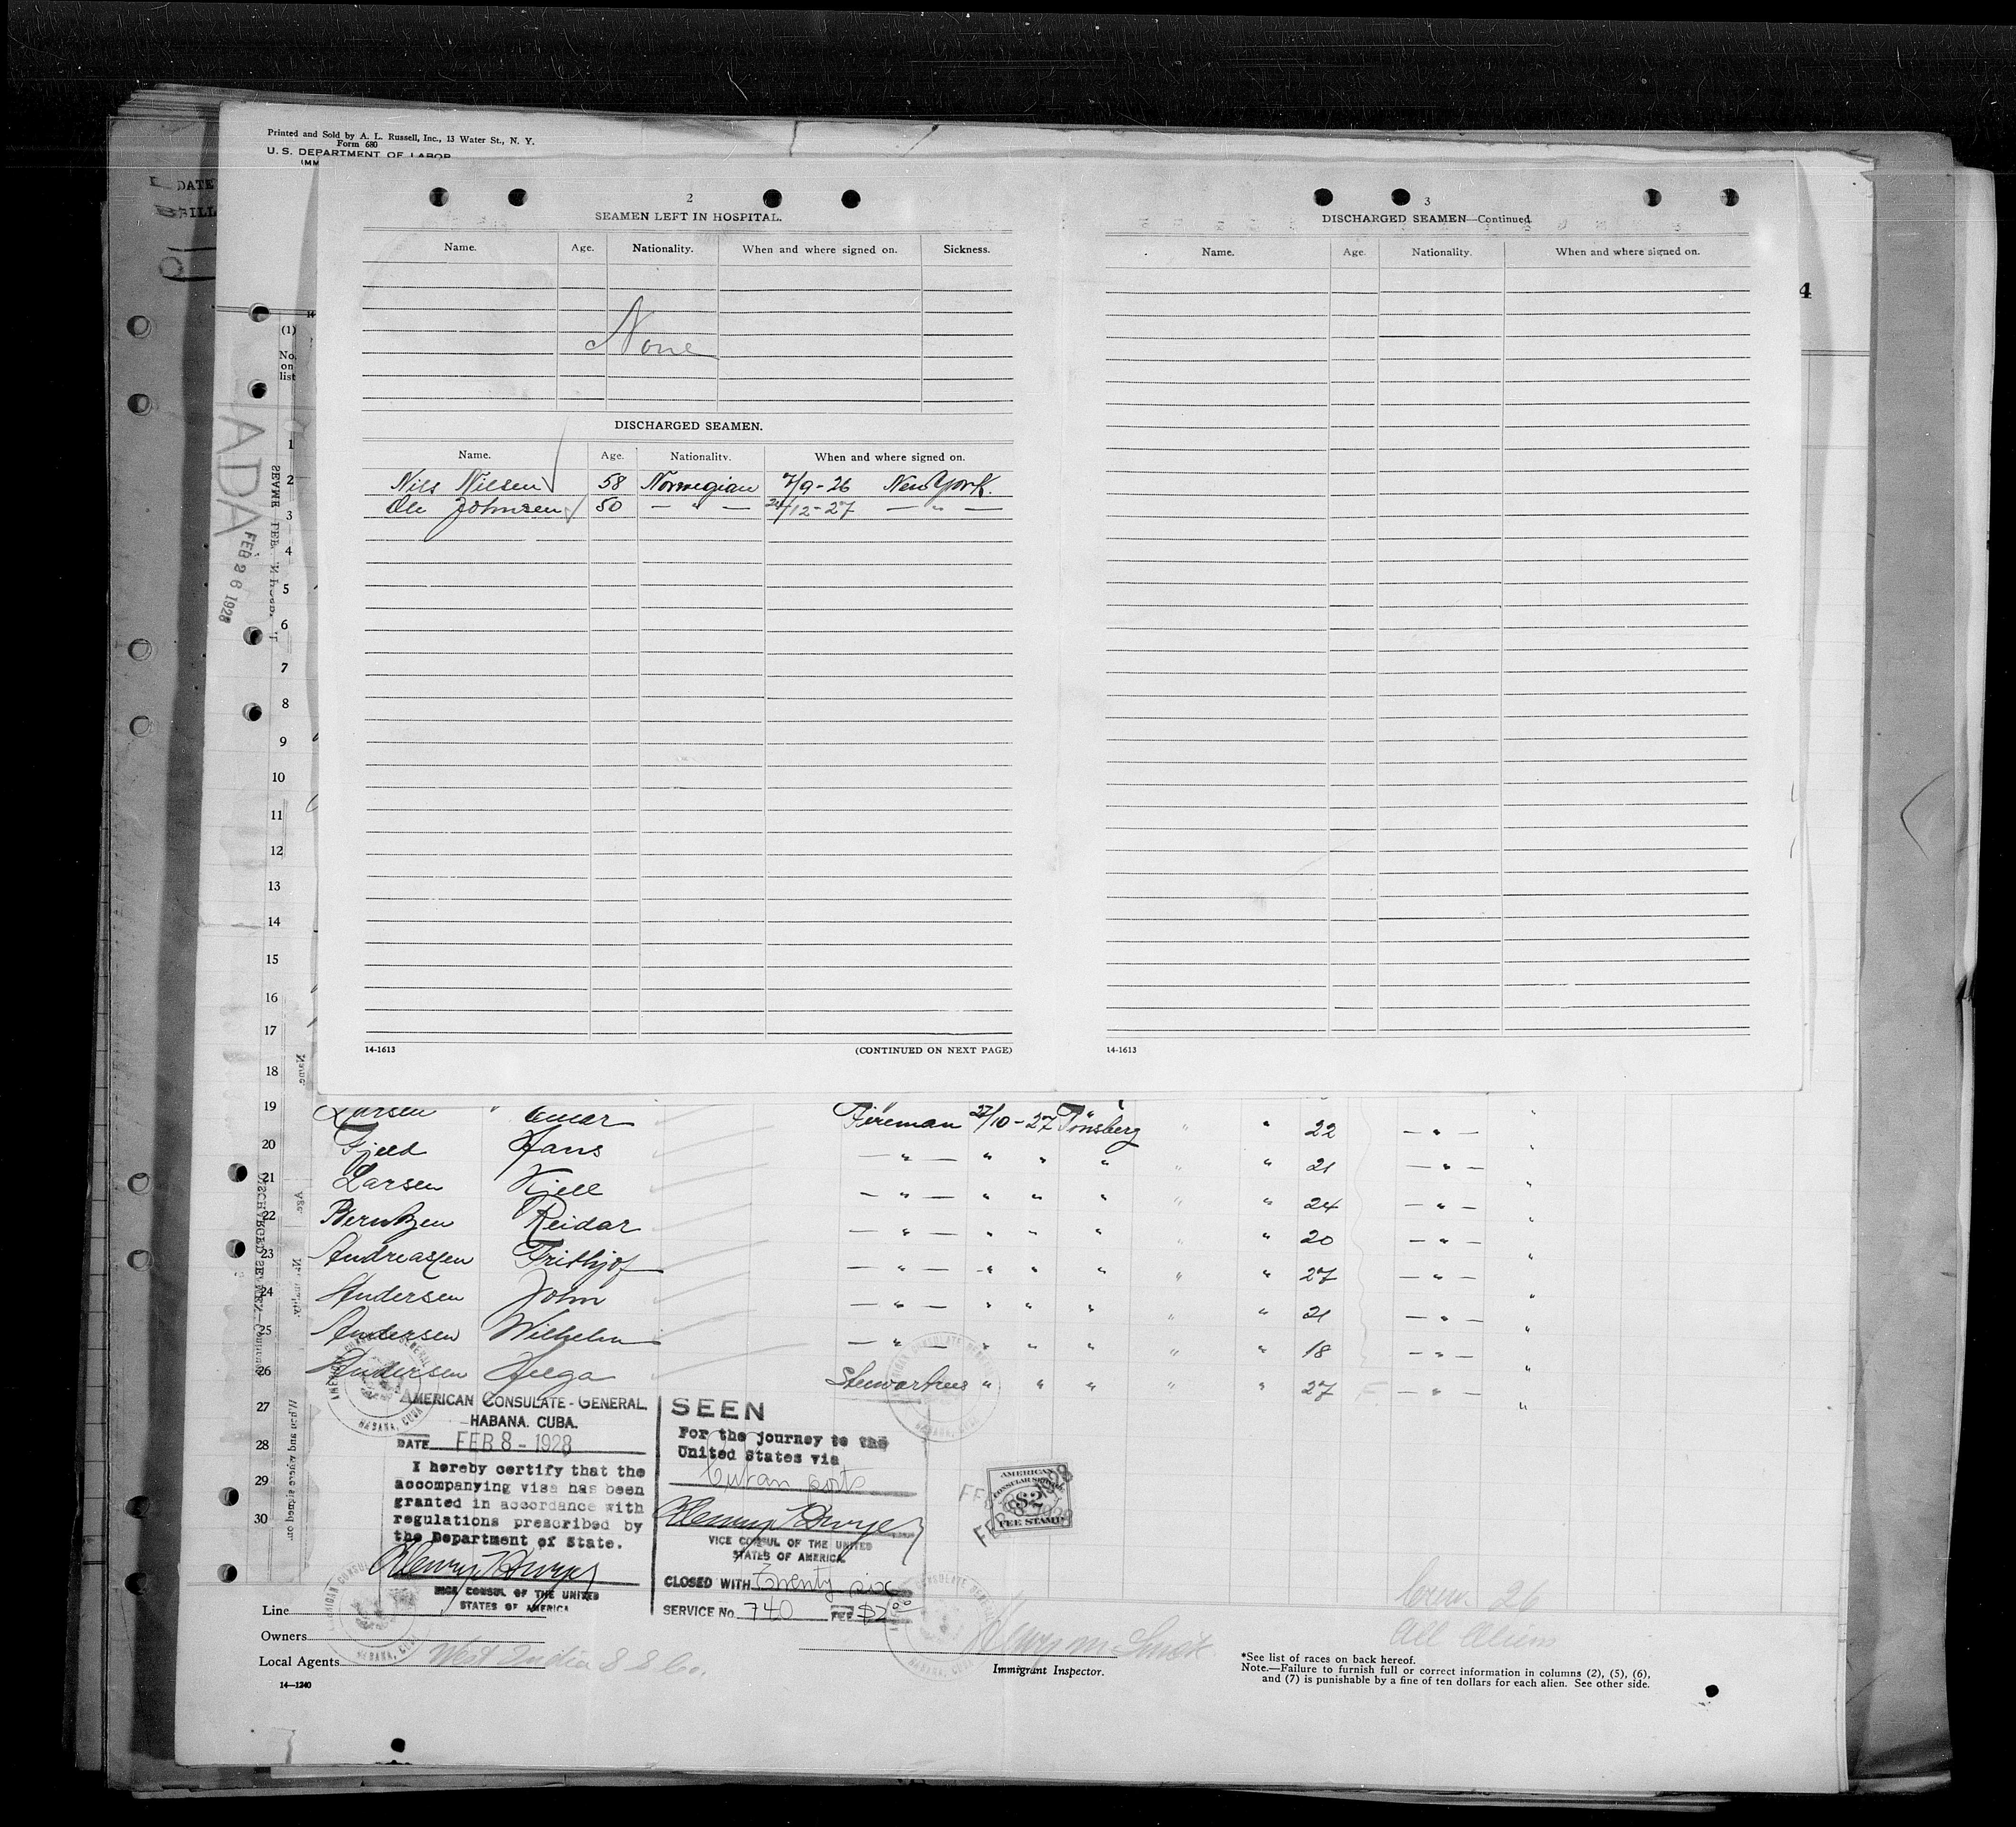 Printed and Sold by A. L. Russell, Inc., 13 Water St., N. Y.
Form 680
U. S. DEPARTMENT OF LABOR
2
SEAMEN LEFT IN HOSPITAL.
Name. Age. Nationality. When and where signed on. Sickness.
None
DISCHARGED SEAMEN.
Name. Age. Nationality. When and where signed on.
Nils Nilsen 58 Norwegian 7/9-26 New York.
Ole Johnsen 50 — " — /12-27 — " —
14-1613 (CONTINUED ON NEXT PAGE)
3
DISCHARGED SEAMEN—Continued.
Name. Age. Nationality. When and where signed on.
14-1613
4
DATE
(1)
No. on list
FEB 26 1928
1
2
3
4
5
6
7
8
9
10
11
12
13
14
15
16
17
18
19 Larsen Einar Fireman 27/10-27 Tønsberg " " 22 — " — "
20 Fjeld Hans — " — " " " " " 21 — " — "
21 Larsen Kjell — " — " " " " " 24 — " — "
22 Berntzen Reidar — " — " " " " " 20 — " — "
23 Andreassen Frithjof — " — " " " " " 27 — " — "
24 Andersen John — " — " " " " " 21 — " — "
25 Andersen Wilhelm — " — " " " " " 18 — " — "
26 Andersen Helga " " " " " 27 F — " — "
27
28
29
30
AMERICAN CONSULATE-GENERAL
HABANA, CUBA.
DATE FEB 8-1928
I hereby certify that the
accompanying visa has been
granted in accordance with
regulations prescribed by
the Department of State.
VICE CONSUL OF THE UNITED
STATES OF AMERICA
SEEN
For the journey to the
United States via
Cuban ports
VICE CONSUL OF THE UNITED
STATES OF AMERICA
CLOSED WITH Twenty six
SERVICE No. 740 FEE $2.00
AMERICAN
CONSULAR SERVICE
$2
FEE STAMP
Crew 26
All Aliens
Line
Owners
Local Agents West India S S Co.
14—1240
Immigrant Inspector.
*See list of races on back hereof.
Note.—Failure to furnish full or correct information in columns (2), (5), (6),
and (7) is punishable by a fine of ten dollars for each alien. See other side.